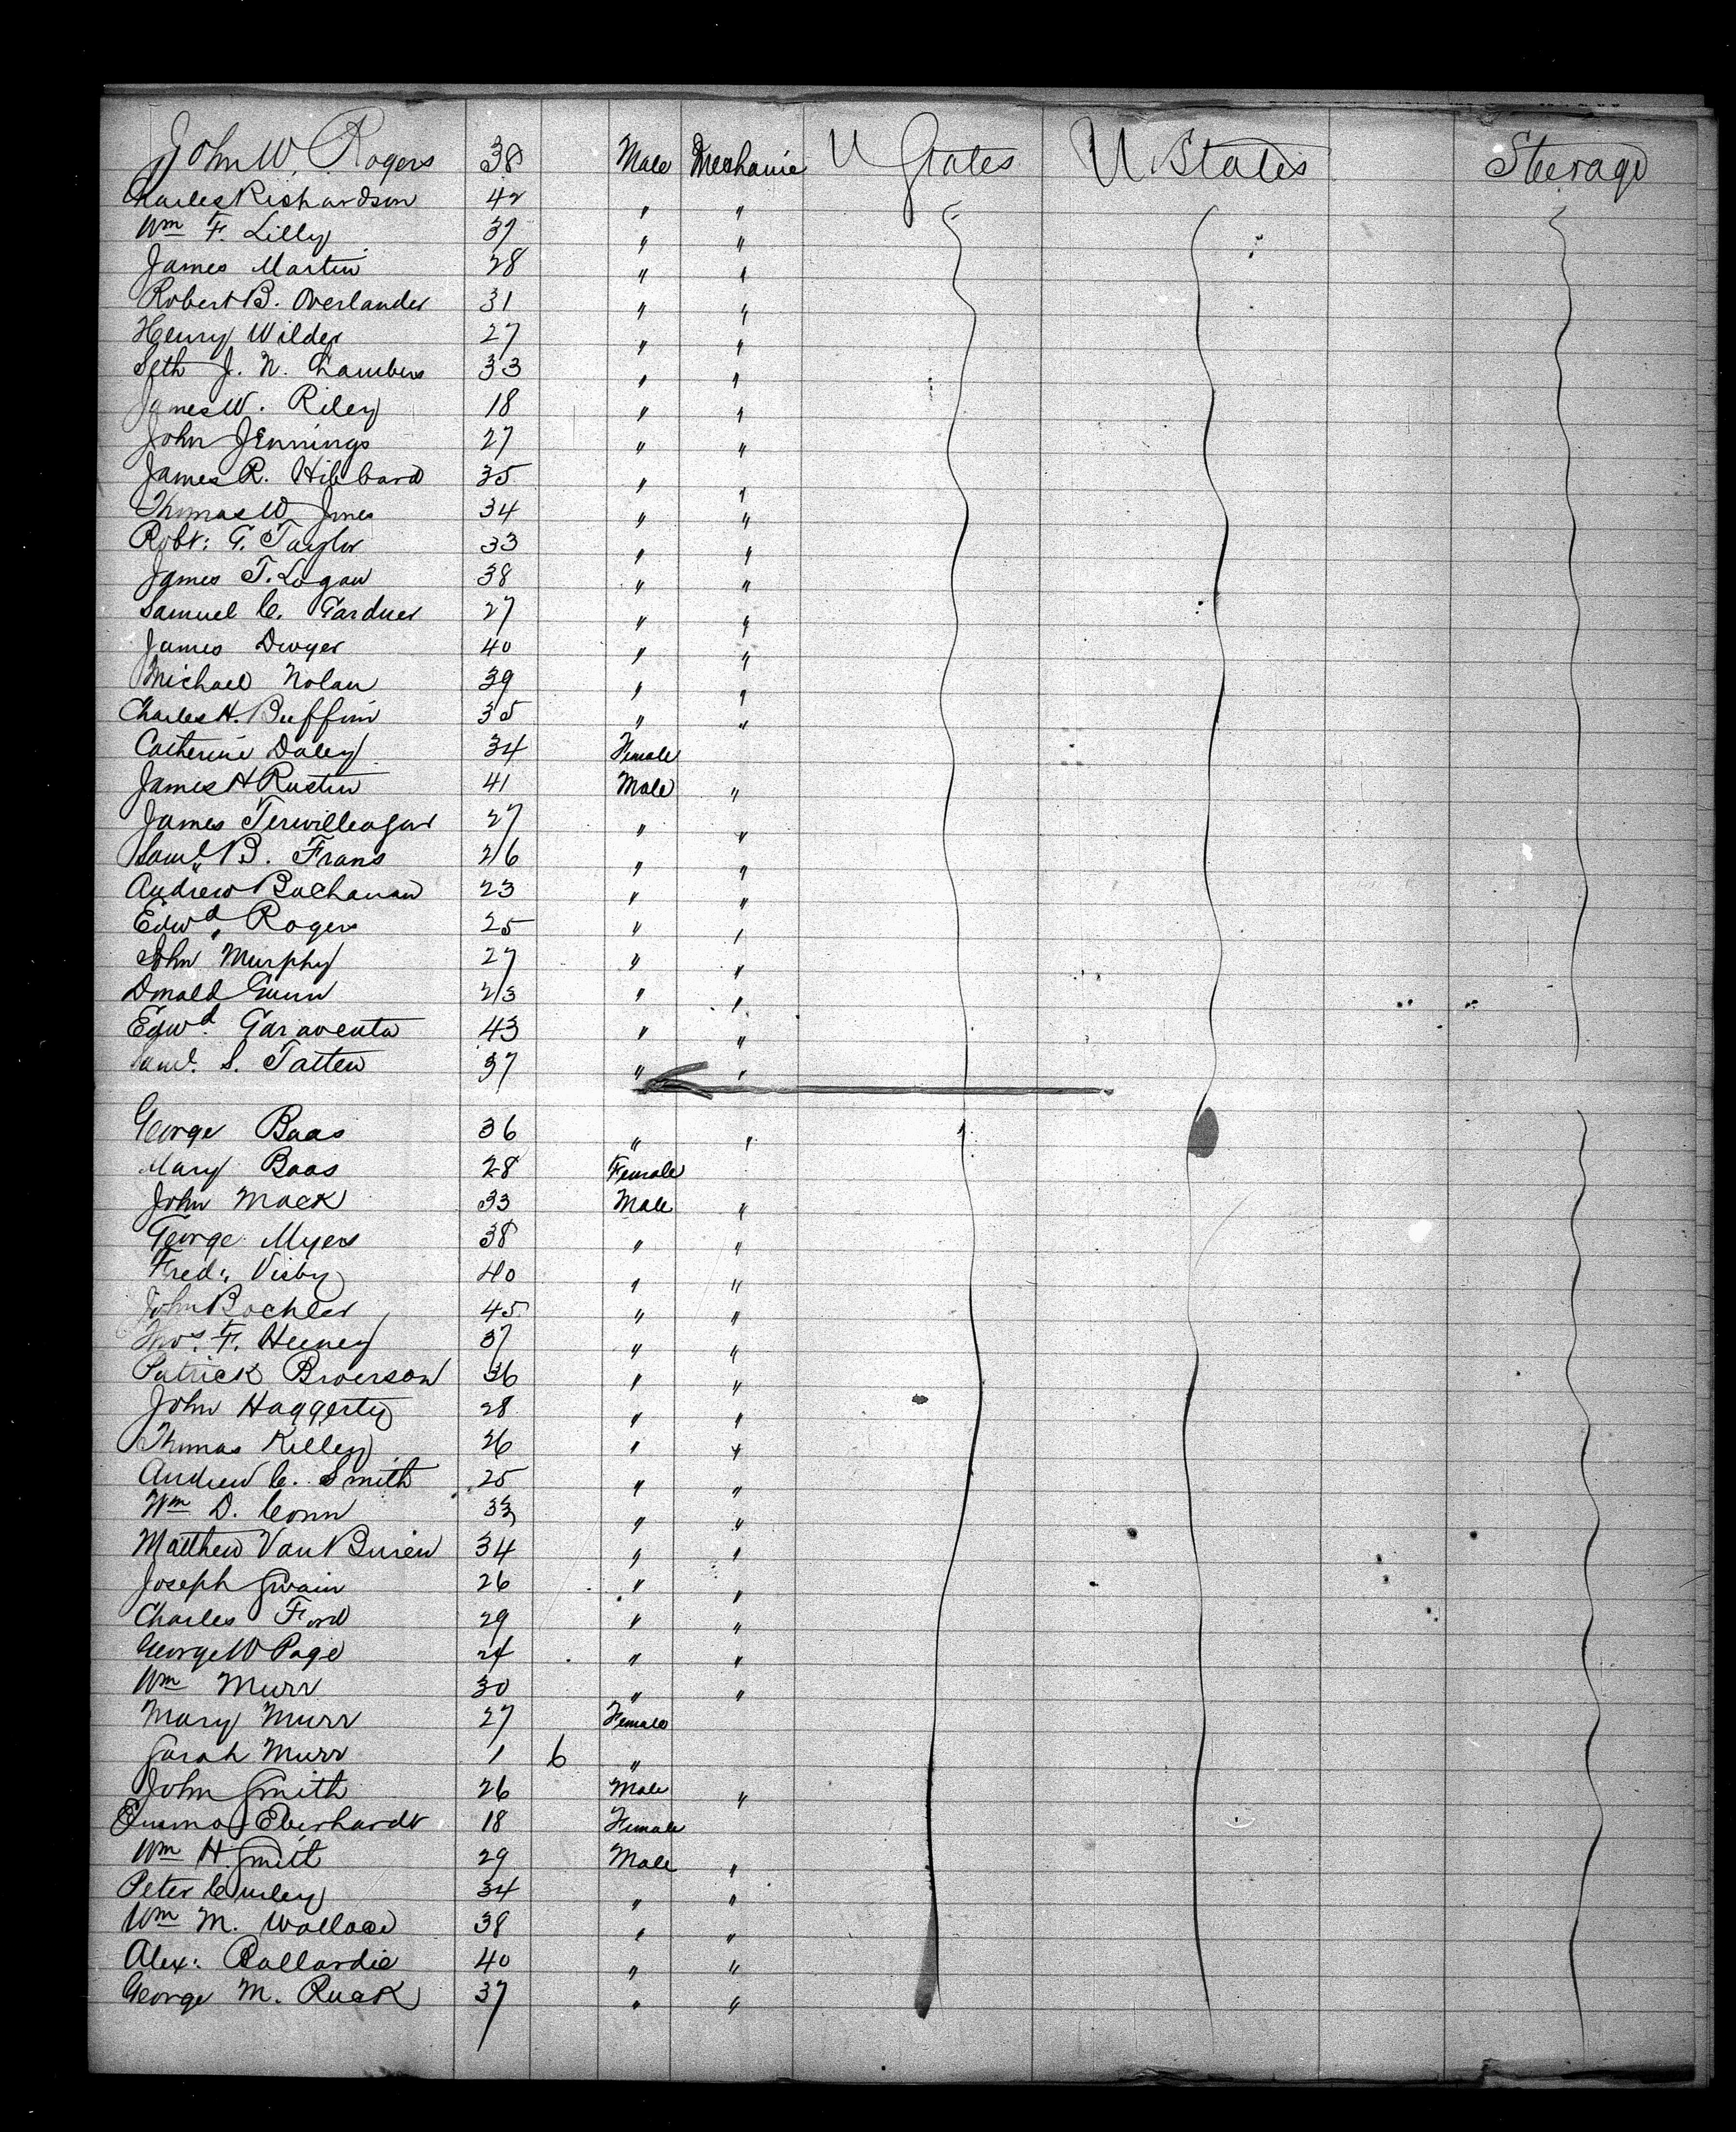 John W. Rogers 38 Male Mechanic U States U States Steerage
Charles Richardson 42 " "
Wm F. Lilly 37 " "
James Martin 28 " "
Robert B. Overlander 31 " "
Henry Wilder 27 " "
Seth J. N. Chambers 33 " "
James W. Riley 18 " "
John Jennings 27 " "
James R. Hibbard 35 " "
Thomas W Jones 34 " "
Robt: G. Taylor 33 " "
James T. Logan 38 " "
Samuel C. Gardner 27 " "
James Dwyer 40 " "
Michael Nolan 39 " "
Charles H. Buffum 35 " "
Catherine Daley 34 Female
James H Rustin 41 Male "
James Terwilleagar 27 " "
Saml B. Frans 26 " "
Andrew Buchanan 23 " "
Edwd. Rogers 25 " "
John Murphy 27 " "
Donald Gunn 23 " "
Edwd. Garaventa 43 " "
Saml. S. Tatten 37 " "
George Baas 36 " "
Mary Baas 28 Female
John Mack 33 Male "
George Myers 38 " "
Fred: Visby 40 " "
John Bochler 45 " "
Thos. F. Heeney 37 " "
Patrick Broerson 36 " "
John Haggerty 28 " "
Thomas Killey 26 " "
Andrew C. Smith 25 " "
Wm D. Conn 33 " "
Matthew Van Buren 34 " "
Joseph Swain 26 " "
Charles Ford 29 " "
George W Page 24 " "
Wm Murr 30 " "
Mary Murr 27 Female
Sarah Murr 1 6 "
John Smith 26 Male "
Emma Eberhardt 18 Female
Wm H. Smith 29 Male "
Peter Curley 34 " "
Wm M. Wallace 38 " "
Alex: Ballardie 40 " "
George M. Ruck 37 " "